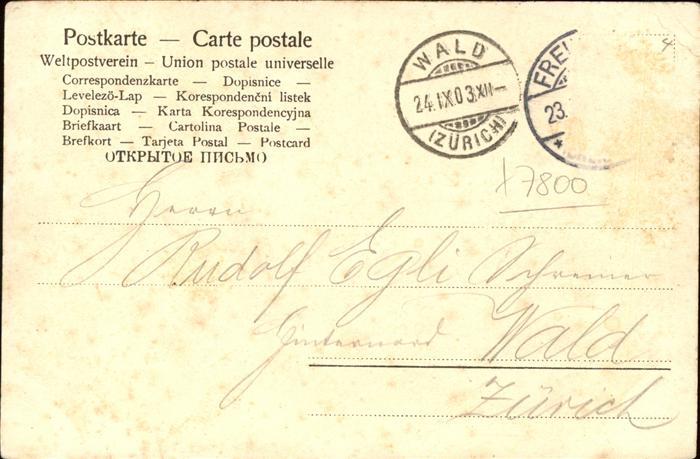 Postkarte — Carte postale
Weltpostverein – Union postale universelle
Correspondenzkarte — Dopisnice —
Levelező-Lap — Korespondenční listek
Dopisnica — Karta Korespondencyjna
Briefkaart — Cartolina Postale —
Brefkort — Tarjeta Postal — Postcard
ОТКРЫТОЕ ПИСЬМО
WALD
24.IX.03.XII—
(ZÜRICH)
FREI
23.
4
7800
Herrn
Rudolf Egli Schreiner
Hinternord Wald
Zürich